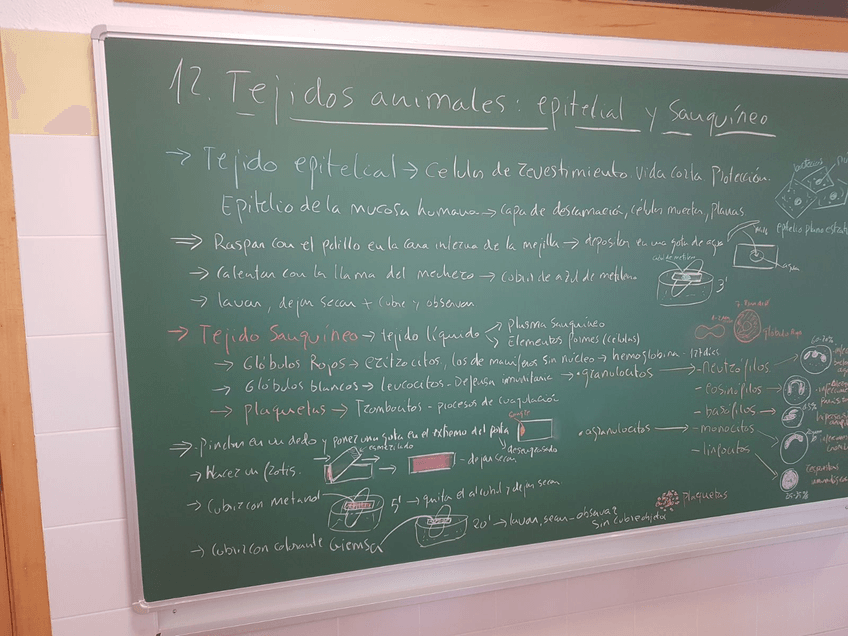 12. Tejidos animales: epitelial y sanguíneo
→ Tejido epitelial → Celulas de revestimiento. Vida corta. Protección.
Epitelio de la mucosa humana → capa de descamación, células muertas, planas
bacterias
epitelio plano
⇒ Raspar con el palillo en la cara interna de la mejilla → depositar en una gota de agua
agua
→ Calentar con la llama del mechero → cubrir de azul de metileno
azul de metileno
3'
→ lavar, dejar secar + cubre y observar
→ Tejido Sanguíneo → tejido líquido
plasma sanguíneo
Elementos formes (celulas)
→ Glóbulos Rojos → eritrocitos, los de mamíferos sin núcleo → hemoglobina - 120 dias
→ Glóbulos blancos → leucocitos - Defensa inmunitaria → • granulocitos → - neutrófilos
- eosinófilos
- basófilos
→ plaquetas → Trombocitos - procesos de coagulación
• agranulocitos → - monocitos
- linfocitos
⇒ Pinchar en un dedo y poner una gota en el extremo del porta
sangre
desengrasado
→ Hacer un frotis.
esmerilado
- dejar secar
→ Cubrir con metanol
5' → quitar el alcohol y dejar secar
plaquetas
→ Cubrir con colorante Giemsa
20' → lavar, secar - observar
Sin cubreobjeto